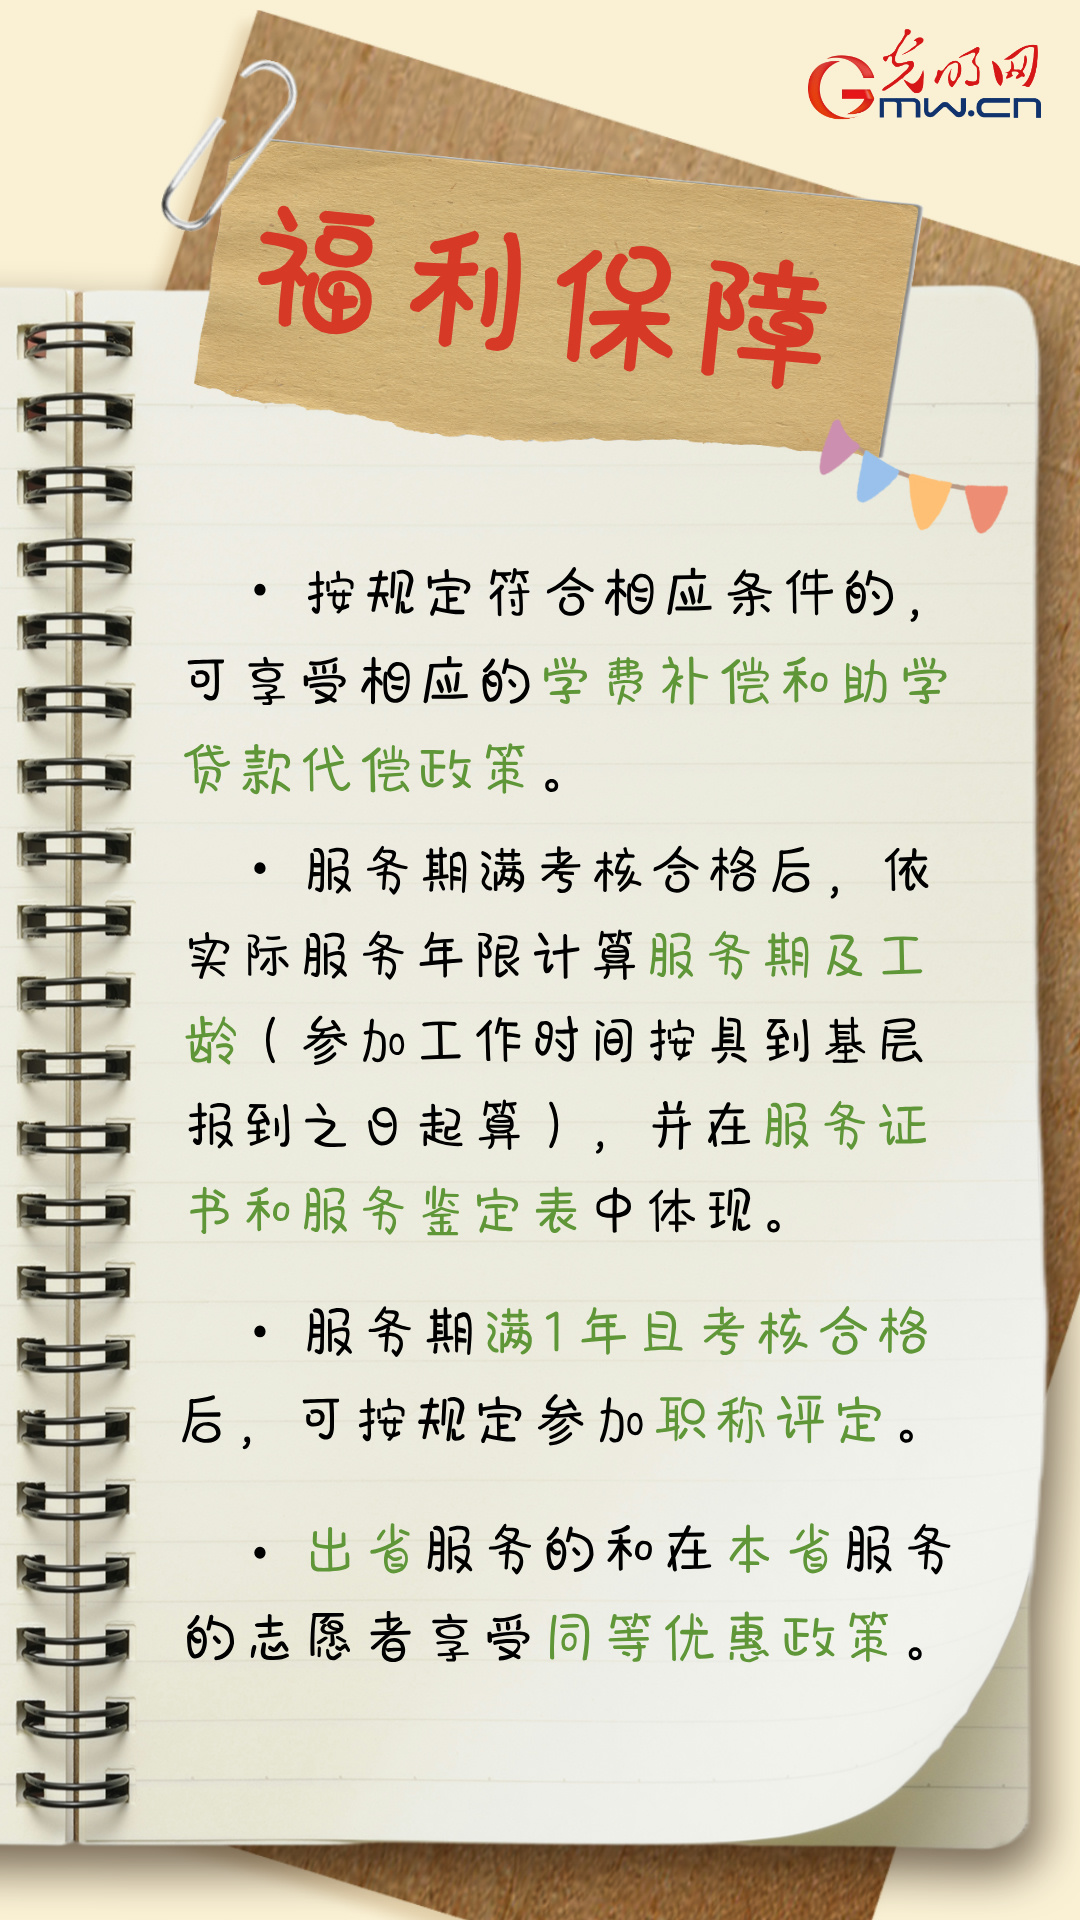 光明网
Gmw.cn
福利保障
• 按规定符合相应条件的，
可享受相应的学费补偿和助学
贷款代偿政策。
• 服务期满考核合格后，依
实际服务年限计算服务期及工
龄（参加工作时间按其到基层
报到之日起算），并在服务证
书和服务鉴定表中体现。
• 服务期满1年且考核合格
后，可按规定参加职称评定。
• 出省服务的和在本省服务
的志愿者享受同等优惠政策。